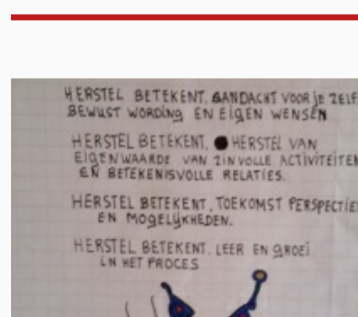 HERSTEL BETEKENT, AANDACHT VOOR JE ZELF
BEWUST WORDING EN EIGEN WENSEN
HERSTEL BETEKENT, HERSTEL VAN
EIGENWAARDE VAN ZINVOLLE ACTIVITEITEN
EN BETEKENISVOLLE RELATIES.
HERSTEL BETEKENT, TOEKOMST PERSPECTIE
EN MOGELIJKHEDEN.
HERSTEL BETEKENT. LEER EN GROEI
IN HET PROCES